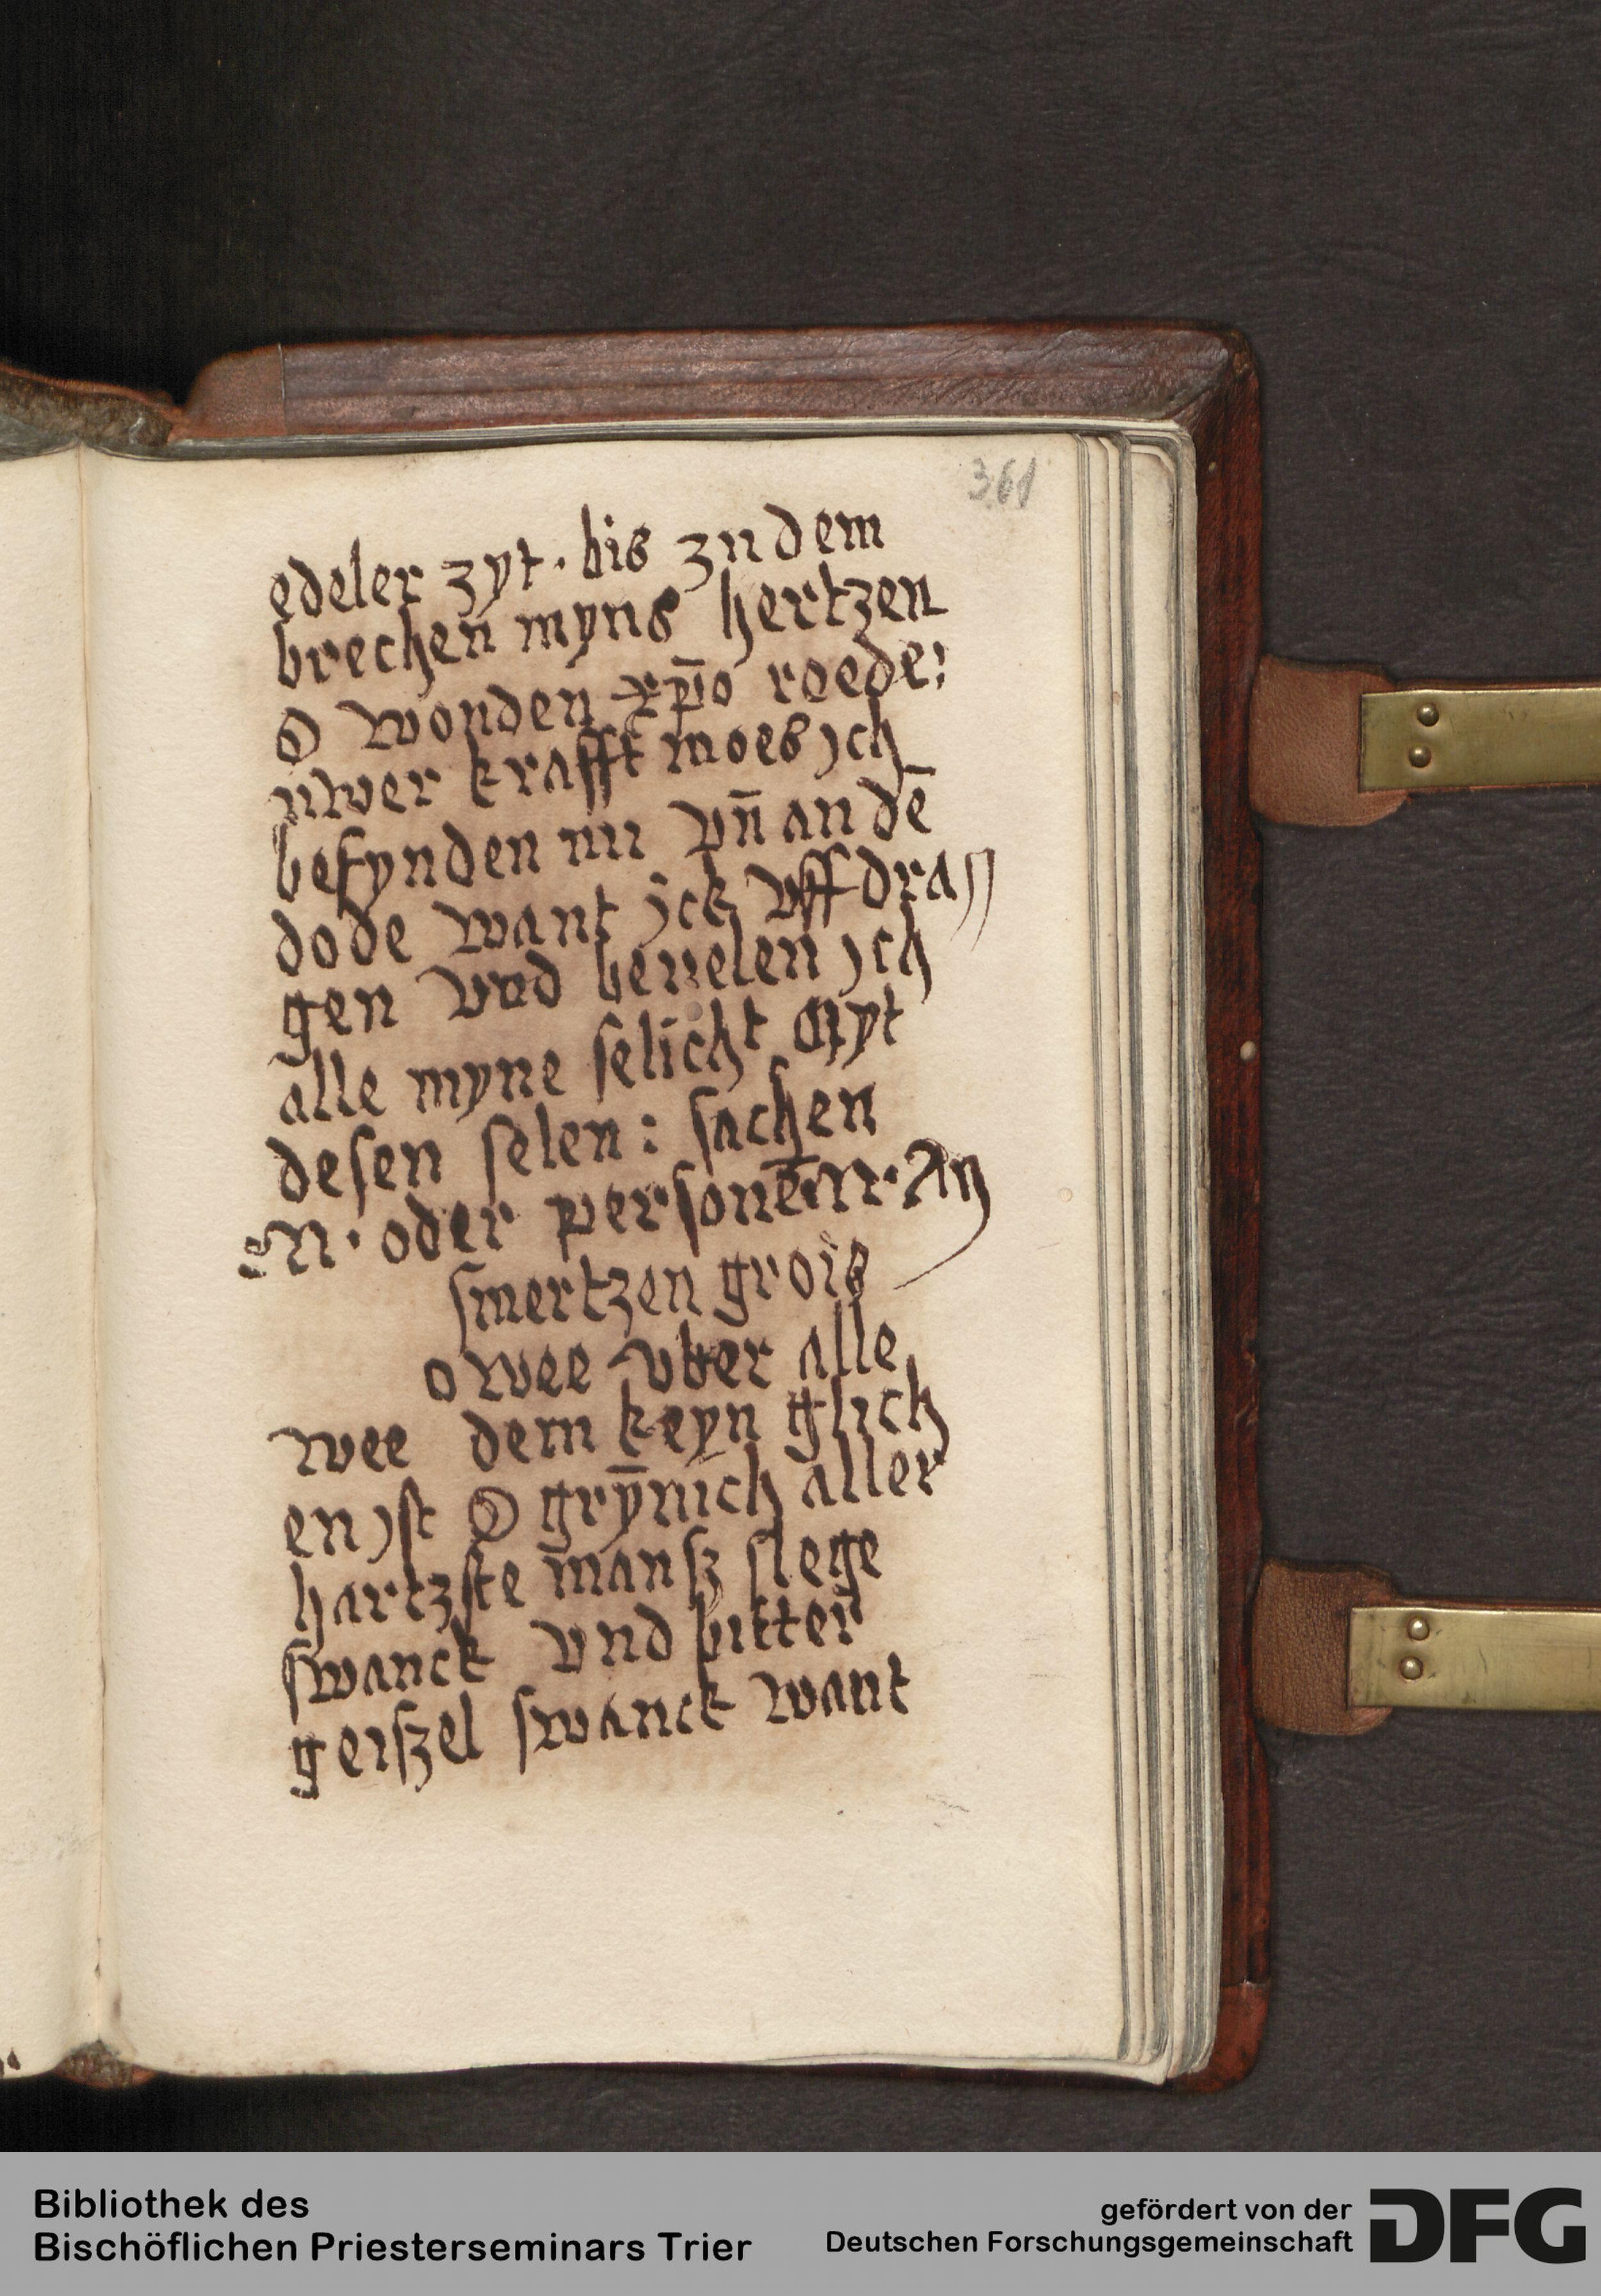 361
edeler zyt · bis zu dem
brechen myns hertzen
O wonden xp̄o roede:
uwer krafft moes ych
befynden nu vn̄ an dē
dode want ick vff dra//
gen vnd beuelen ych
alle myne selicht Gyt
desen selen : sachen
N · oder personē N · An
smertzen grois
o wee vber alle
wee dem keyn glich
en yst O grȳnich aller
hartzste mansz slege
swanck vnd bitter
geiszel swanck want
Bibliothek des
Bischöflichen Priesterseminars Trier
gefördert von der
Deutschen Forschungsgemeinschaft
DFG